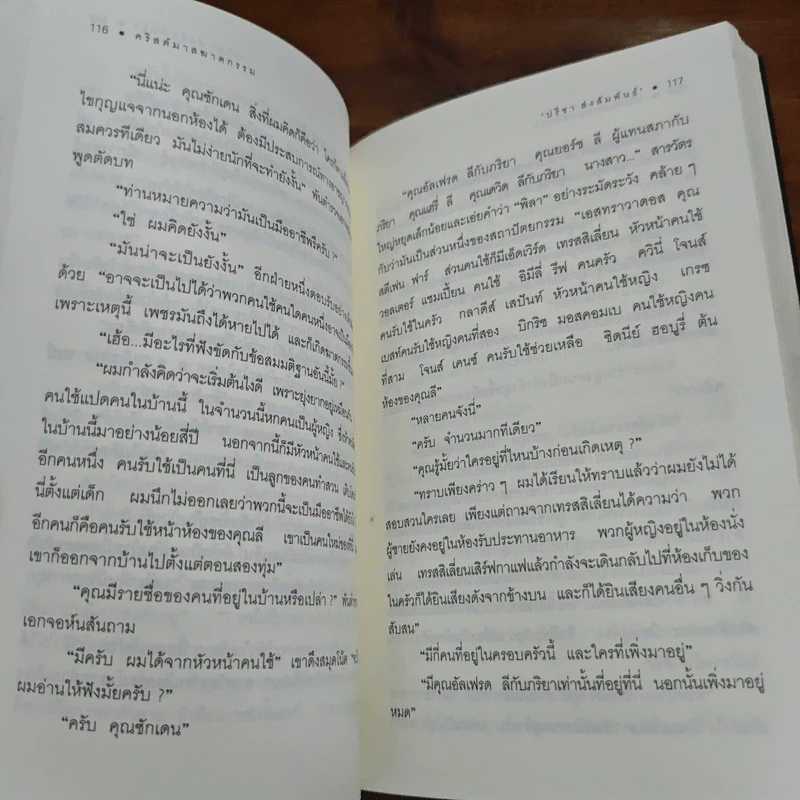 116 • คริสต์มาสฆาตกรรม
“นี่แน่ะ คุณซักเดน สิ่งที่ผมคิดก็คือว่า
ไขกุญแจจากนอกห้องได้ ต้องมีประสบการณ์ทาง
สมควรทีเดียว มันไม่ง่ายนักที่จะทำยังงั้น”
พูดตัดบท
“ท่านหมายความว่ามันเป็นมืออาชีพรึครับ ?”
“ใช่ ผมคิดยังงั้น”
“มันน่าจะเป็นยังงั้น” อีกฝ่ายหนึ่งตอบรับอย่าง
ด้วย “อาจจะเป็นไปได้ว่าพวกคนใช้คนใดคนหนึ่งอาจเป็น
เพราะเหตุนี้ เพชรมันถึงได้หายไปได้ และก็เกิดฆาตกรรมขึ้น
“เฮ้อ...มีอะไรที่ฟังขัดกับข้อสมมติฐานอันนี้มั้ย ?”
“ผมกำลังคิดว่าจะเริ่มต้นไงดี เพราะยุ่งยากอยู่เหมือนกัน
คนใช้แปดคนในบ้านนี้ ในจำนวนนี้หกคนเป็นผู้หญิง
ในบ้านนี้มาอย่างน้อยสี่ปี นอกจากนี้ก็มีหัวหน้าคนใช้
อีกคนหนึ่ง คนรับใช้เป็นคนที่นี่ เป็นลูกของคนทำสวน
นี่ตั้งแต่เด็ก ผมนึกไม่ออกเลยว่าพวกนี้จะเป็นมืออาชีพได้
อีกคนก็คือคนรับใช้หน้าห้องของคุณลี เขาเป็นคนใหม่ของที่นี่
เขาก็ออกจากบ้านไปตั้งแต่ตอนสองทุ่ม”
“คุณมีรายชื่อของคนที่อยู่ในบ้านหรือเปล่า ?”
เอกจอห์นสันถาม
“มีครับ ผมได้จากหัวหน้าคนใช้” เขาดึงสมุดโน้ต
ผมอ่านให้ฟังมั้ยครับ ?”
“ครับ คุณซักเดน”
‘ปรีชา ส่งสัมพันธ์’ • 117
“คุณอัลเฟรด ลีกับภริยา คุณยอร์ช ลี ผู้แทนสภากับ
ภริยา คุณแฮรี่ ลี คุณเดวิด ลีกับภริยา นางสาว...” สารวัตร
ใหญ่หยุดเล็กน้อยและเอ่ยคำว่า “พิลา” อย่างระมัดระวัง คล้าย ๆ
กับว่ามันเป็นส่วนหนึ่งของสถาปัตยกรรม “เอสทราวาดอส คุณ
สตีเฟน ฟาร์ ส่วนคนใช้ก็มีเอ็ดเวิร์ด เทรสสิเลี่ยน หัวหน้าคนใช้
วอลเตอร์ แชมเปี้ยน คนใช้ อิมีลี่ รีฟ คนครัว ควินี่ โจนส์
คนรับใช้ในครัว กลาดีส์ เสปันท์ หัวหน้าคนใช้หญิง เกรซ
เบสท์คนรับใช้หญิงคนที่สอง บิกริช มอสคอมเบ คนใช้หญิงคน
ที่สาม โจนส์ เคนช์ คนรับใช้ช่วยเหลือ ซิดนีย์ ฮอบูรี่ ต้น
ห้องของคุณลี”
“หลายคนจังนี่”
“ครับ จำนวนมากทีเดียว”
“คุณรู้มั้ยว่าใครอยู่ที่ไหนบ้างก่อนเกิดเหตุ ?”
“ทราบเพียงคร่าว ๆ ผมได้เรียนให้ทราบแล้วว่าผมยังไม่ได้
สอบสวนใครเลย เพียงแต่ถามจากเทรสสิเลี่ยนได้ความว่า พวก
ผู้ชายยังคงอยู่ในห้องรับประทานอาหาร พวกผู้หญิงอยู่ในห้องนั่ง
เล่น เทรสสิเลี่ยนเสิร์ฟกาแฟแล้วกำลังจะเดินกลับไปที่ห้องเก็บของ
ในครัวก็ได้ยินเสียงดังจากข้างบน และก็ได้ยินเสียงคนอื่น ๆ วิ่งกัน
สับสน”
“มีกี่คนที่อยู่ในครอบครัวนี้ และใครที่เพิ่งมาอยู่”
“มีคุณอัลเฟรด ลีกับภริยาเท่านั้นที่อยู่ที่นี่ นอกนั้นเพิ่งมาอยู่
หมด”